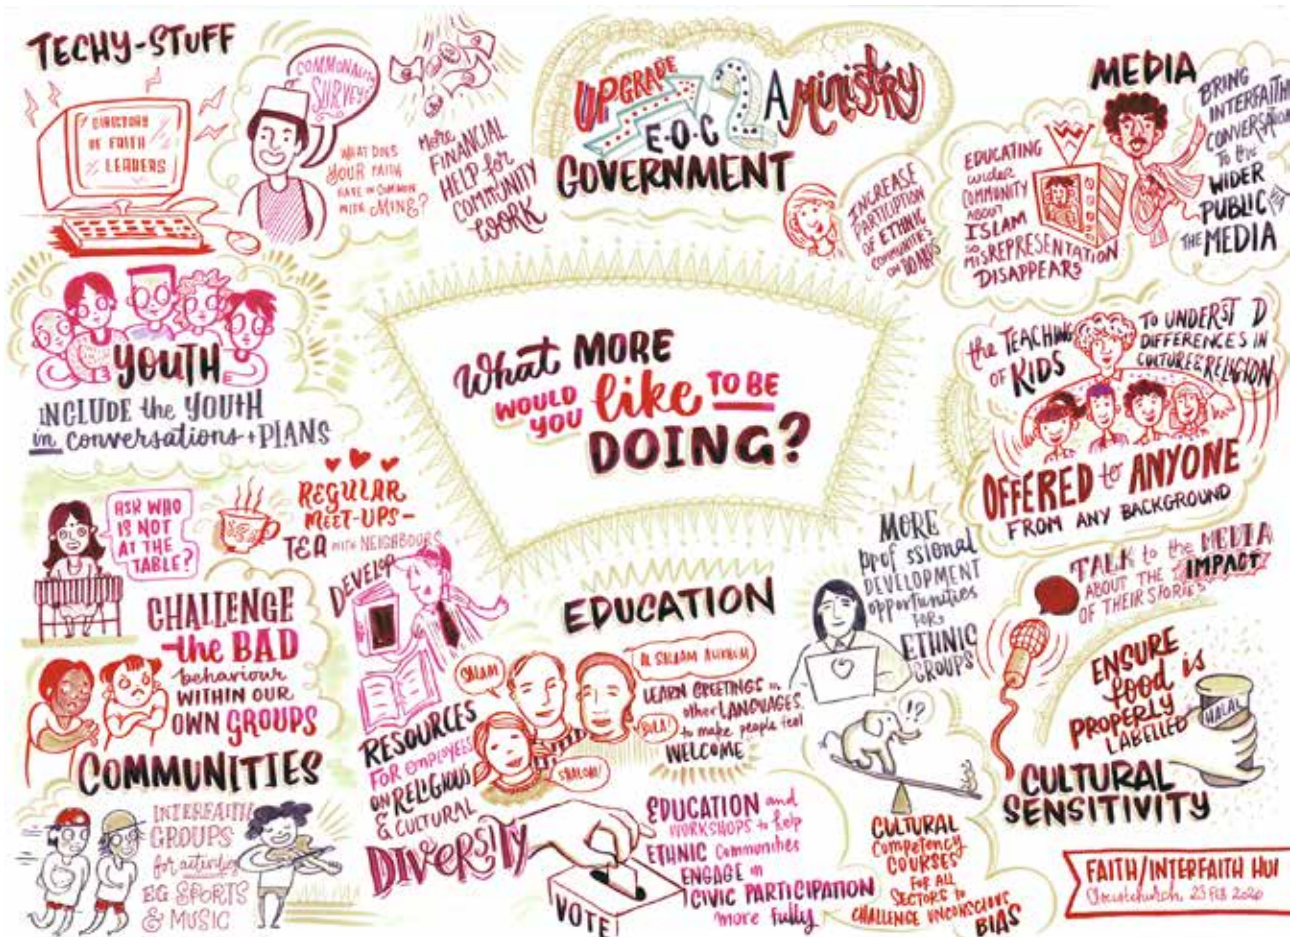 TECHY-STUFF
DIRECTORY
OF FAITH
LEADERS
COMMONALITY
SURVEYS
WHAT DOES
YOUR FAITH
HAVE IN COMMON
WITH MINE?
More
FINANCIAL
HELP for
COMMUNITY
WORK
UPGRADE
E-O-C
2 A MINISTRY
GOVERNMENT
INCREASE
PARTICIPTION
OF ETHNIC
COMMUNITIES
ON BOARDS
MEDIA
EDUCATING
wider
COMMUNITY
ABOUT
ISLAM
SO
MISREPRESENTATION
DISAPPEARS
BRING
INTERFAITH
CONVERSATIONS
TO the
WIDER
PUBLIC VIA
THE MEDIA
YOUTH
INCLUDE the YOUTH
in conversations + PLANS
What MORE
WOULD
YOU like TO BE
DOING?
the TEACHING
OF KIDS
TO UNDERST D
DIFFERENCES IN
CULTURE & RELIGION
OFFERED to ANYONE
FROM ANY BACKGROUND
ASK WHO
IS NOT
AT THE
TABLE?
REGULAR
MEET-UPS-
TEA WITH NEIGHBOURS
CHALLENGE
the BAD
behaviour
WITHIN OUR
OWN GROUPS
COMMUNITIES
INTERFAITH
GROUPS
for activities
EG SPORTS
& MUSIC
DEVELOP
RESOURCES
FOR EMPLOYEES
ON RELIGIOUS
& CULTURAL
DIVERSITY
EDUCATION
SALAM
BULA!
SHALOM!
LEARN GREETINGS in
other LANGUAGES
to make people feel
WELCOME
VOTE
EDUCATION and
WORKSHOPS to help
ETHNIC Communities
ENGAGE in
CIVIC PARTICIPATION
more fully
MORE
prof ssional
DEVELOPMENT
opportunities
FOR
ETHNIC
GROUPS
!?
CULTURAL
Competency
COURSES
FOR ALL
SECTORS to
CHALLENGE UNCONSCIOUS
BIAS
TALK to the MEDIA
ABOUT THE IMPACT
OF THEIR STORIES
ENSURE
food is
PROPERLY
LABELLED
HALAL
CULTURAL
SENSITIVITY
FAITH/INTERFAITH HUI
Christchurch, 23 FEB 2020